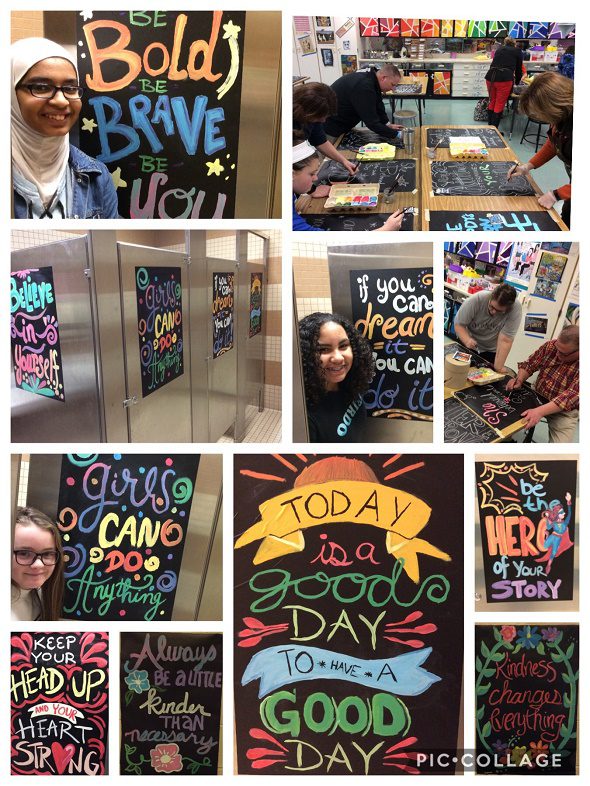 be
BE
Bold,
BE
BRAVE
BE
you
Believe
in
yourself
girls
CAN
DO
Anything
if you
can
dream
it
you CAN
do it
if you
can
dream
it
you CAN
do it
She
girls
CAN
DO
Anything
TODAY
is a
good
DAY
TO • HAVE • A
GOOD
DAY
be
the
HERO
of your
STORY
KEEP
YOUR
HEAD UP
AND YOUR
HEART
STRONG
Always
BE A LITTLE
kinder
THAN
necessary
Kindness
changes
Everything
PIC•COLLAGE